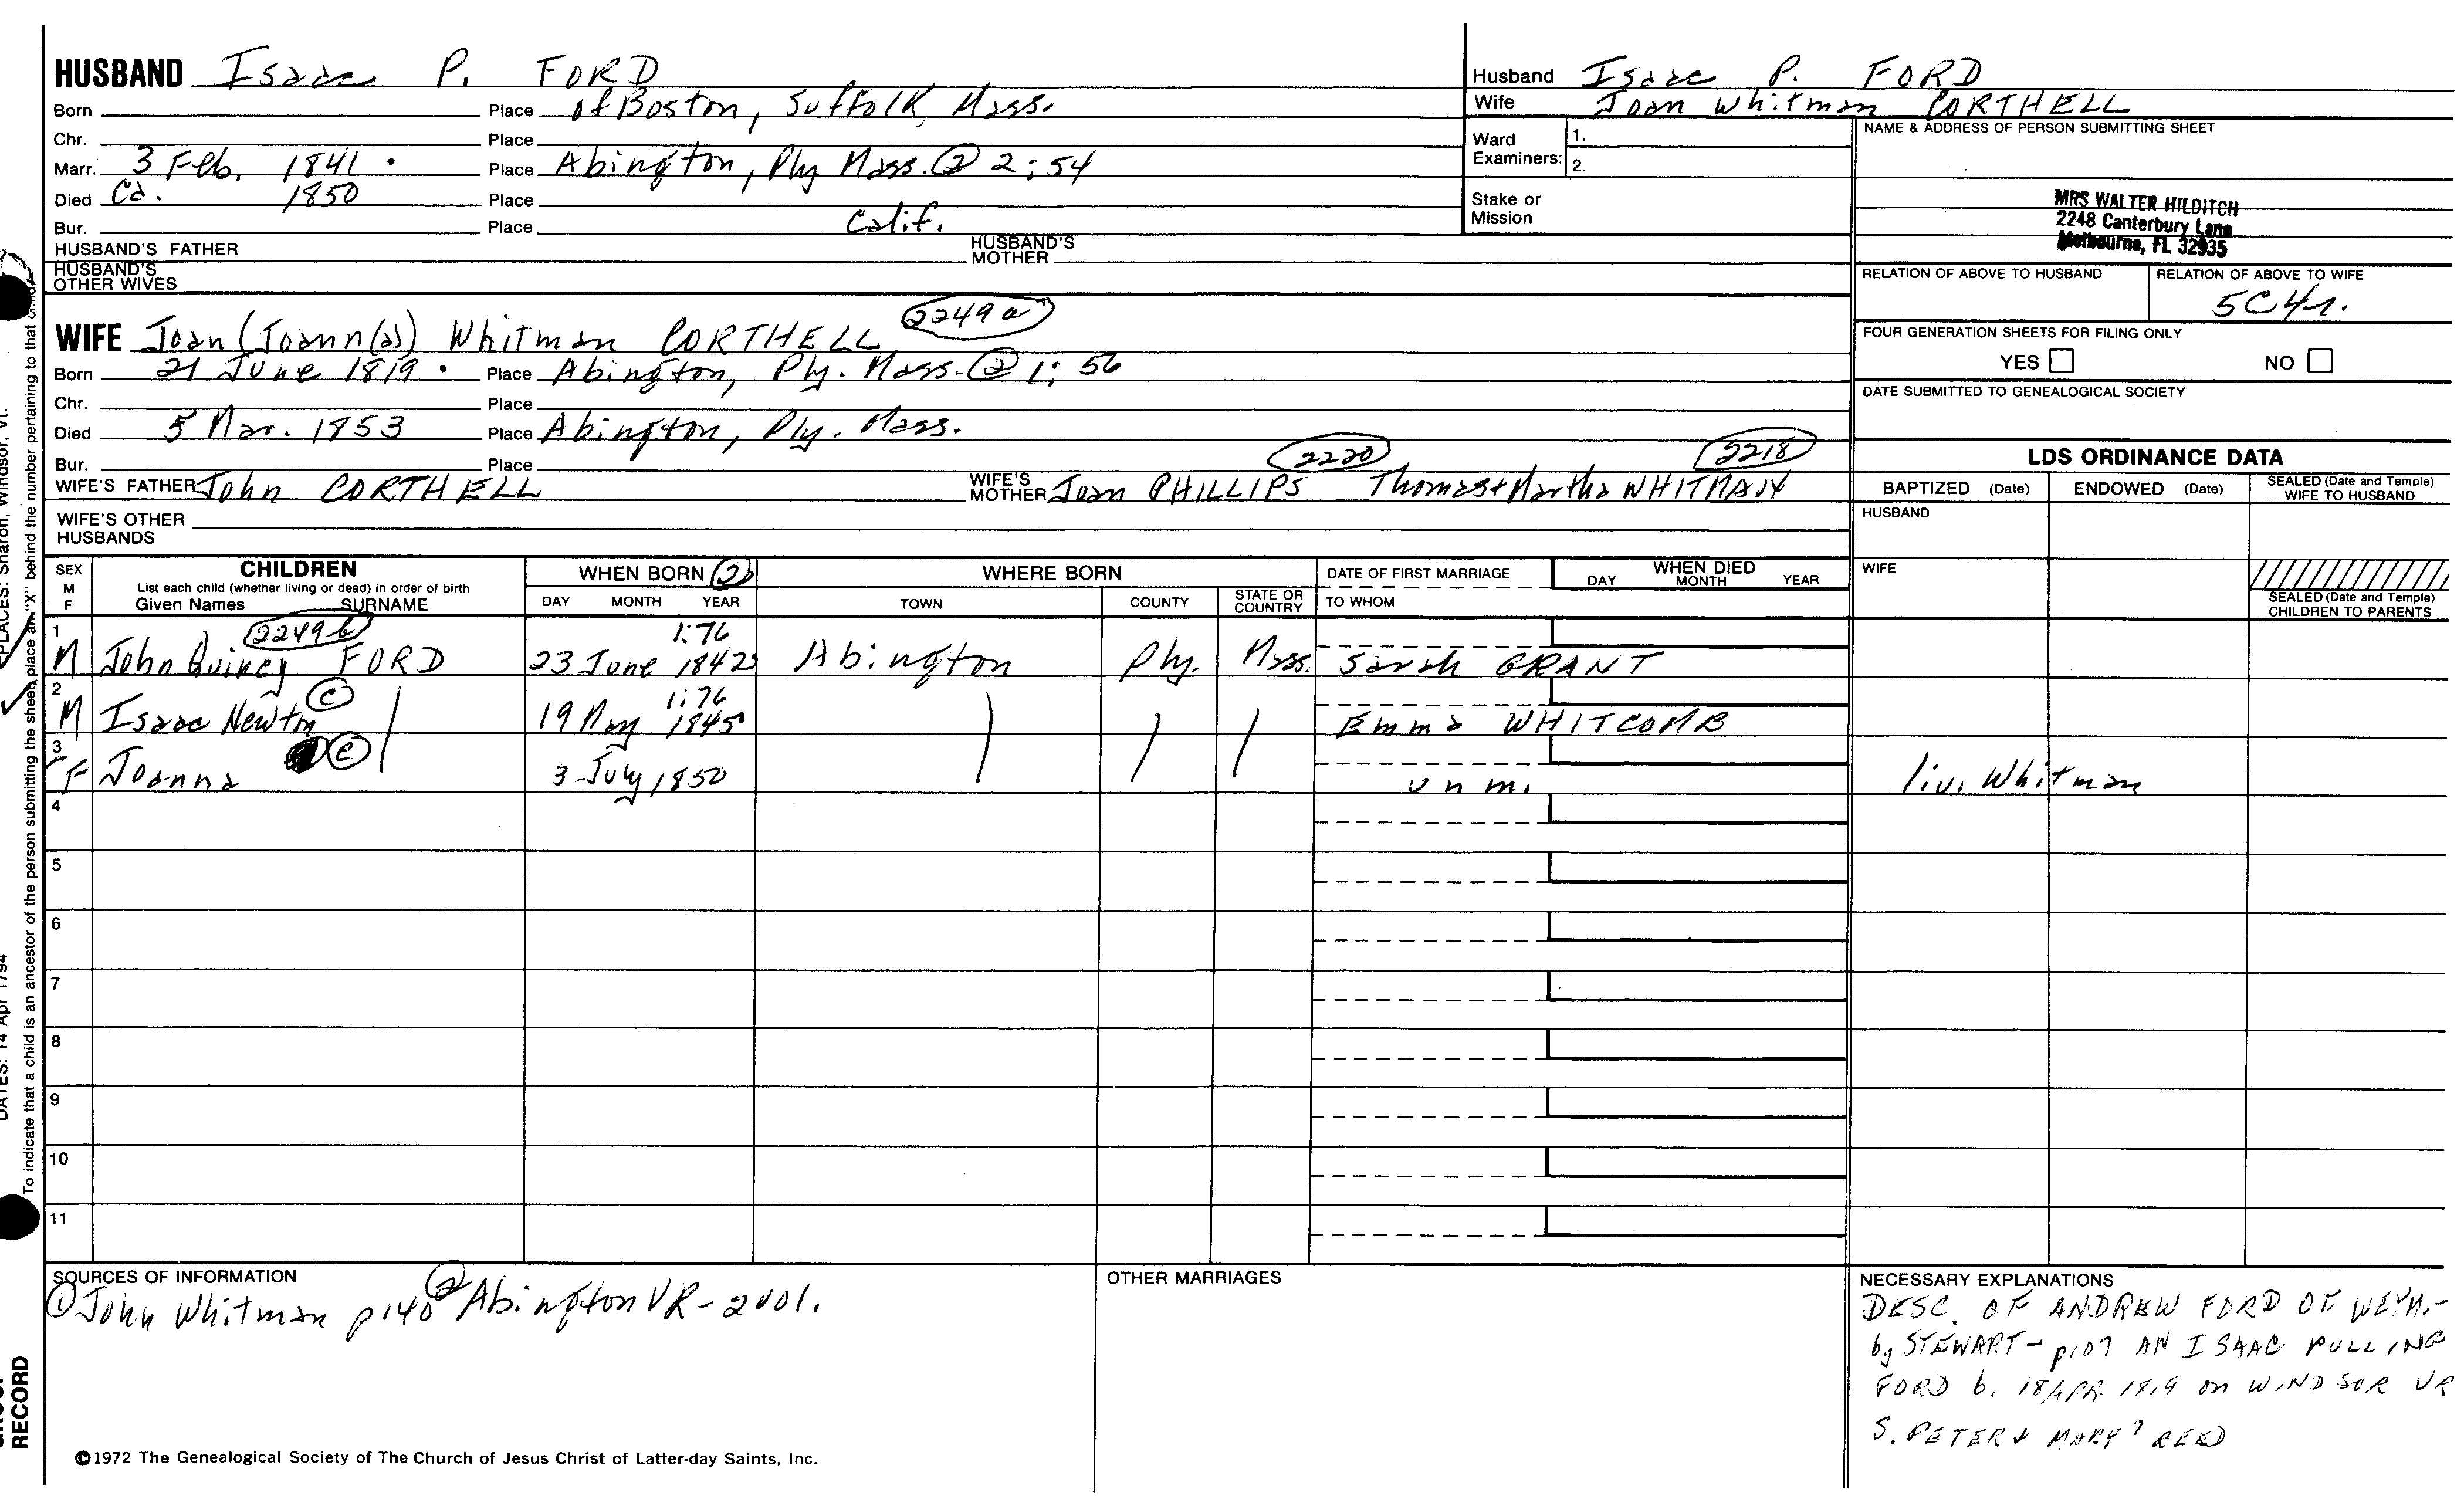 HUSBAND Isaac P. FORD
Born Place of Boston, Suffolk, Mass.
Chr. Place
Marr. 3 Feb. 1841 . Place Abington, Ply Mass. ② 2:54
Died Ca. 1850 Place Calif.
Bur. Place
HUSBAND'S FATHER HUSBAND'S MOTHER
HUSBAND'S OTHER WIVES
Husband Isaac P. FORD
Wife Joan Whitman CORTHELL
Ward Examiners: 1.
2.
Stake or Mission
NAME & ADDRESS OF PERSON SUBMITTING SHEET
MRS WALTER HILDITCH
2248 Canterbury Lane
Melbourne, FL 32935
RELATION OF ABOVE TO HUSBAND RELATION OF ABOVE TO WIFE
5C4r.
FOUR GENERATION SHEETS FOR FILING ONLY
YES NO
DATE SUBMITTED TO GENEALOGICAL SOCIETY
2249a
WIFE Joan (Joann(a)) Whitman CORTHELL
Born 21 June 1819 . Place Abington, Ply. Mass. ② 1:56
Chr. Place
Died 5 Mar. 1853 Place Abington, Ply. Mass.
Bur. Place
2220 2218
WIFE'S FATHER John CORTHELL WIFE'S MOTHER Joan PHILLIPS Thomas + Martha WHITMAN
WIFE'S OTHER HUSBANDS
LDS ORDINANCE DATA
BAPTIZED (Date) ENDOWED (Date) SEALED (Date and Temple) WIFE TO HUSBAND
HUSBAND
WIFE
SEALED (Date and Temple) CHILDREN TO PARENTS
SEX M F
CHILDREN
List each child (whether living or dead) in order of birth
Given Names SURNAME
WHEN BORN ②
DAY MONTH YEAR
WHERE BORN
TOWN COUNTY STATE OR COUNTRY
DATE OF FIRST MARRIAGE
TO WHOM
WHEN DIED
DAY MONTH YEAR
2249b 1:76
1 M John Quincy FORD 23 June 1842 Abington Ply. Mass. Sarah GRANT
1:76
2 M Isaac Newton © 19 May 1845 Emma WHITCOMB
3 F Joanna © 3 July 1850 unm. liv. Whitman
4
5
6
7
8
9
10
11
SOURCES OF INFORMATION
① John Whitman p140 ② Abington VR - 2 vol.
OTHER MARRIAGES
NECESSARY EXPLANATIONS
DESC. OF ANDREW FORD OF WEYM.-
by STEWART - p107 AN ISAAC PULLING
FORD b. 18 APR. 1819 on WINDSOR VR
S. PETER & MARY ? REED
©1972 The Genealogical Society of The Church of Jesus Christ of Latter-day Saints, Inc.
PLACES: Sharon, Windsor, Vt.
DATES: 14 Apr 1794
To indicate that a child is an ancestor of the person submitting the sheet, place an "X" behind the number pertaining to that child.
RECORD